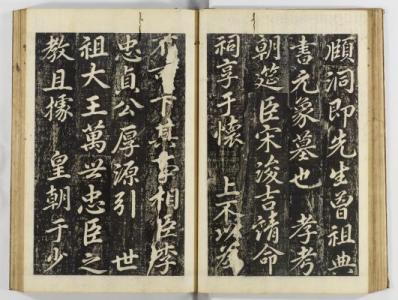 頋洞即先生曾祖典
書元象墓也 孝考
朝筵臣宋浚吉請命
祠享于懷 上不以爲
不可下其事相臣李
忠自公厚源引 世
祖大王萬世忠臣之
教且據 皇朝于少